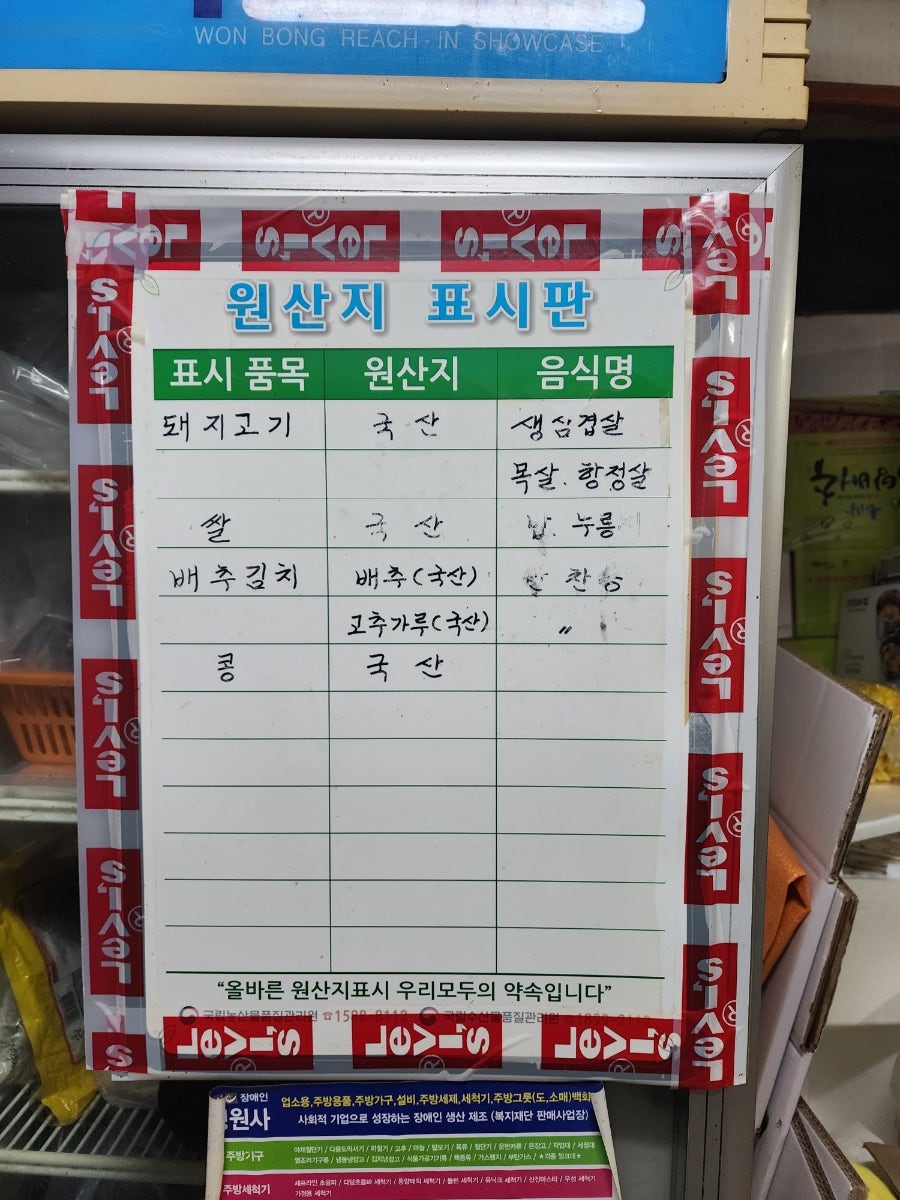 WON BONG REACH-IN SHOWCASE
Levi's Levi's Levi's Levi's
원산지 표시판
표시 품목 원산지 음식명
돼지고기 국산 생삼겹살
목살. 항정살
쌀 국산 밥. 누룽지
배추김치 배추(국산) 찬
고추가루(국산) 〃
콩 국산
“올바른 원산지표시 우리모두의 약속입니다”
국립농산물품질관리원 ☎1588-8112 국립수산물품질관리원
Levi's Levi's Levi's
장애인 업소용,주방용품,주방가구,설비,주방세제,세척기,주방그릇(도,소매)백화
원사 사회적 기업으로 성장하는 장애인 생산 제조 (복지재단 판매사업장)
주방기구
주방세척기
가정용 세척기